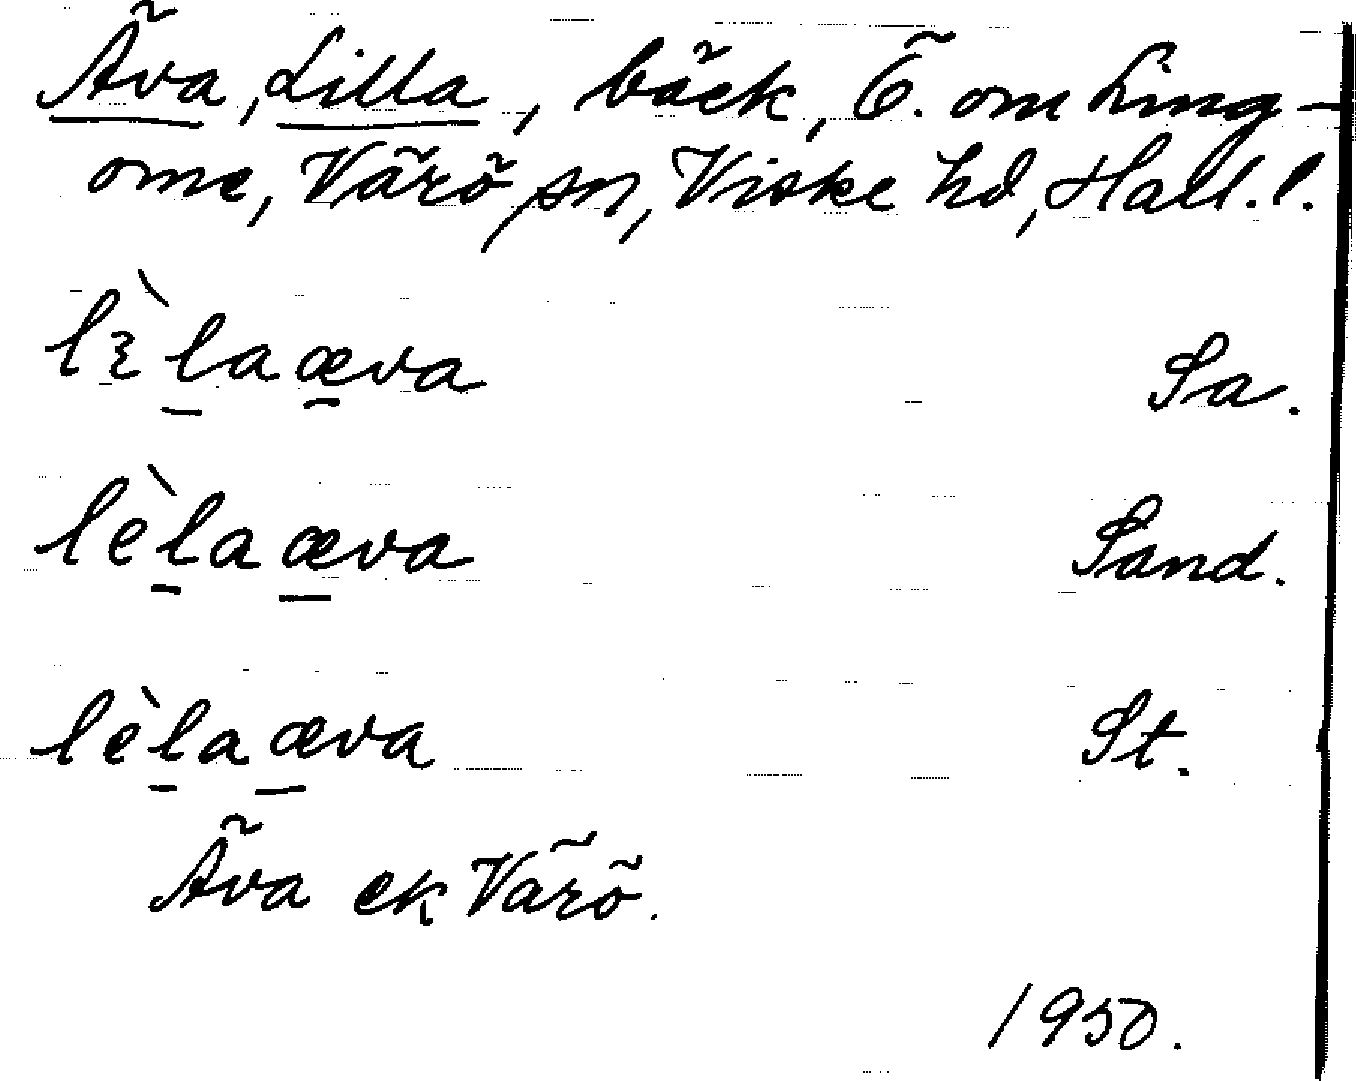 Äva, Lilla, bäck, Ö. om Ling-
ome, Värö sn, Viske hd, Hall. l.
lɛ̀la æva Sa.
lèla æva Sand.
lèla æva St.
Äva ek Värö.
1950.